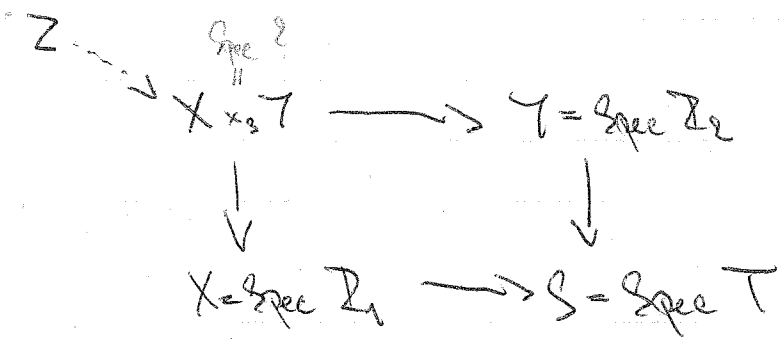 Spec ?
||
Z
X ×_S Y → Y = Spec R_2
X = Spec R_1 → S = Spec T